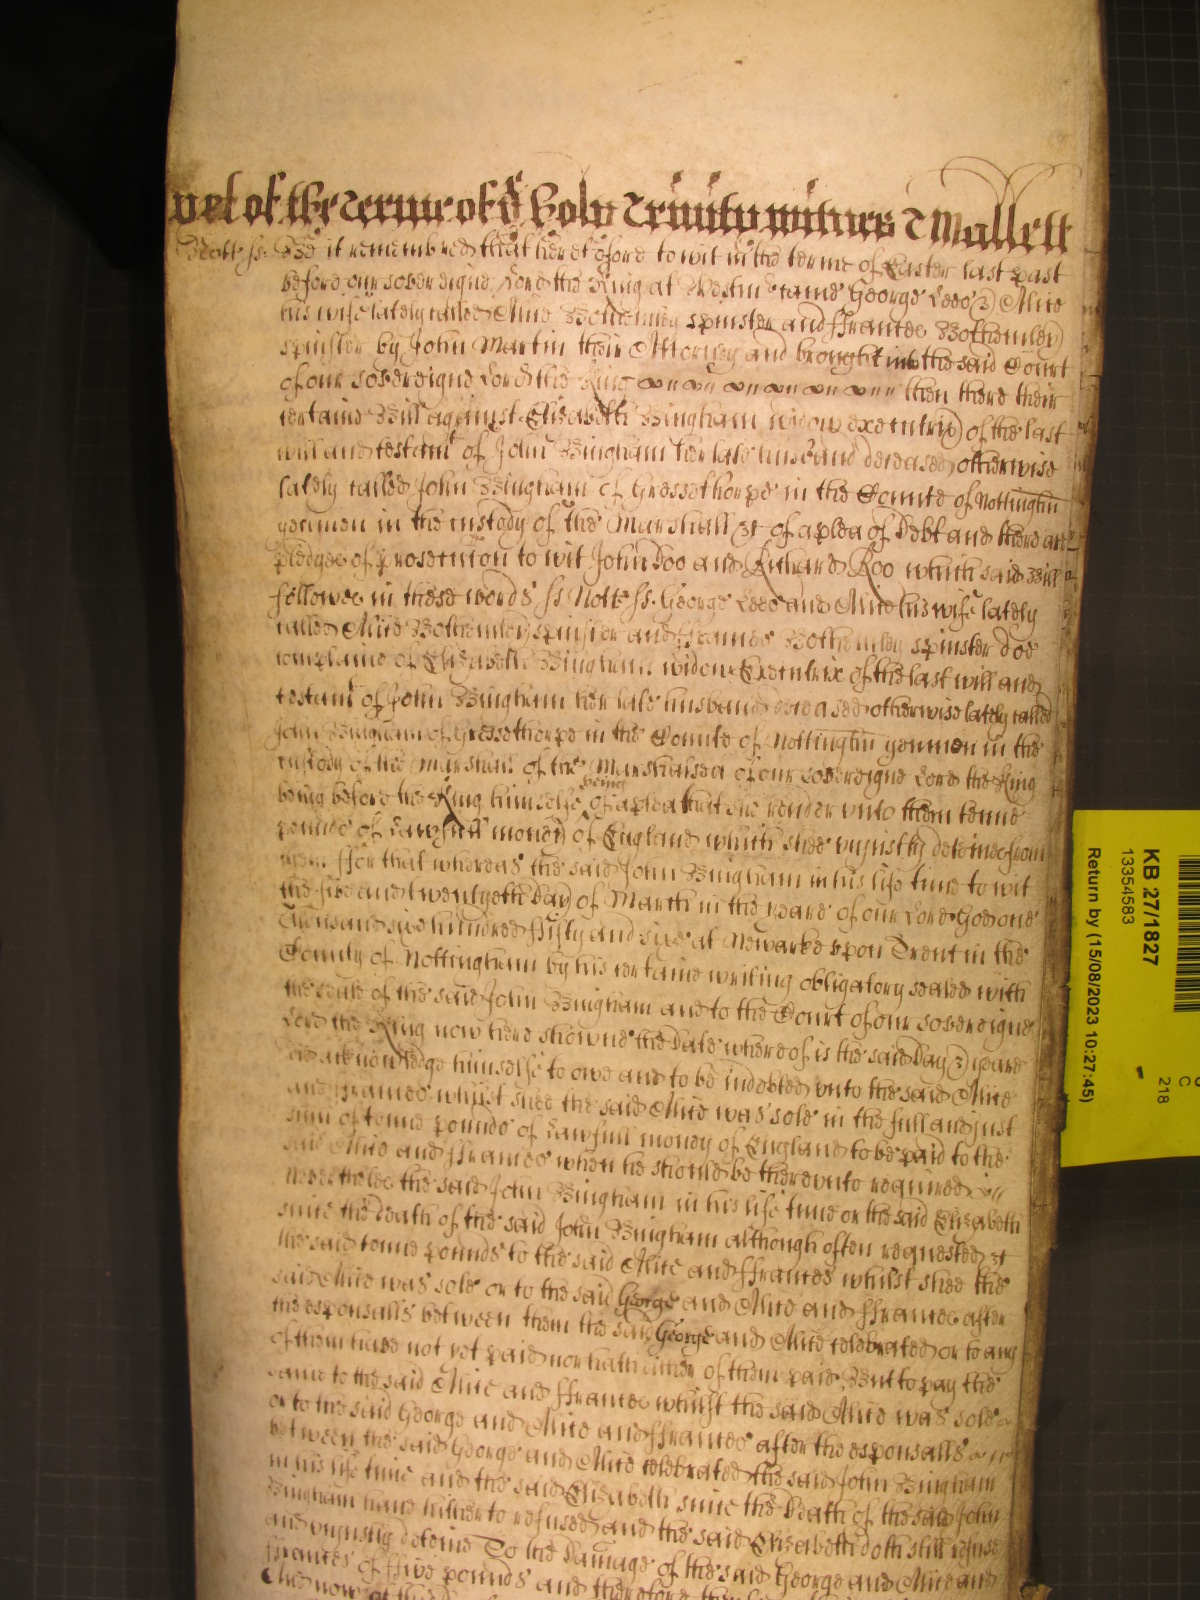 yet of the Terme of ye holy Trinity witnes T Mallett
Nott ss. Bee it remembred that heretofore to wit in the terme of Easter last past
before our sovereigne Lord the King at Westm came George Lees & Alice
his wife lately called Alice Bothemley spinster and ffrances Bothemley
spinster by John Martin their Attorney and brought into the said Court
of our sovereigne Lord the King then there their
certaine Bill against Elizabeth Bingham widow executrix of the last
will and testamt of John Bingham her late husband deceased otherwise
lately called John Bingham of Gressethorpe in the Countie of Nottingham
yeomen in the custody of the Marshall &c of a plea of Debt and there are
pledges of prosecution to wit John Doo and Richard Roo which said Bill
followes in these words ss Notts ss. George Lees and Alice his wife lately
called Alice Bothemley spinster and ffrances Bothemley spinster doe
complaine of Elizabeth Bingham widow Executrix of the last will and
testamt of John Bingham her late husband deceased otherwise lately called
John Bingham of Gressethorpe in the Countie of Nottingham yeomen in the
custody of the Marshall of the Marshalsea of our sovereigne Lord the King
being before the King himselfe being of a plea that she render unto them tenne
pounds of Lawfull money of England which shee uniustly deteines from
them ffor that whereas the said John Bingham in his life time to wit
the five and twentyeth day of March in the yeare of our Lord God one
thousand six hundred ffifty and six at Newarke upon Trent in the
County of Nottingham by his certaine writing obligatory sealed with
the seale of the said John Bingham and to the Court of our sovereigne
Lord the King now here showne the Date whereof is the said Day & yeare
did acknowledge himselfe to owe and to be indebted unto the said Alice
and ffrances whilst shee the said Alice was sole in the full and just
sum of tenne pounds of Lawfull money of England to be paid to the
said Alice and ffrances when he should be thereunto required
Neverthelesse the said John Bingham in his life time or the said Elizabeth
since the death of the said John Bingham although often requested &c
the said tenne pounds to the said Alice and ffrances whilst shee the
said Alice was sole or to the said George and Alice and ffrances after
the espousalls between them the said George and Alice celebrated or to any
of them have not yet paid nor hath either of them paid But to pay the
same to the said Alice and ffrances whilst the said Alice was sole
or to the said George and Alice and ffrances after the espousalls
between the said George and Alice celebrated the said John Bingham
in his life time and the said Elizabeth since the Death of the said John
Bingham have hitherto refused and the said Elizabeth doth still refuse
and uniustly deteine To the Damage of the said George and Alice and
ffrances of ffive pounds and therefore
Alice now at this
KB 27/1827
13354583
Return by (15/08/2023 10:27:45)
C
218